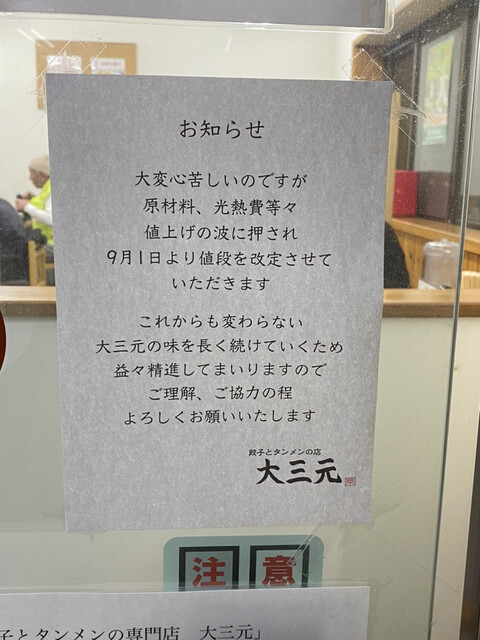 お知らせ
大変心苦しいのですが
原材料、光熱費等々
値上げの波に押され
9月1日より値段を改定させて
いただきます
これからも変わらない
大三元の味を長く続けていくため
益々精進してまいりますので
ご理解、ご協力の程
よろしくお願いいたします
餃子とタンメンの店
大三元
注意
子とタンメンの専門店　大三元」